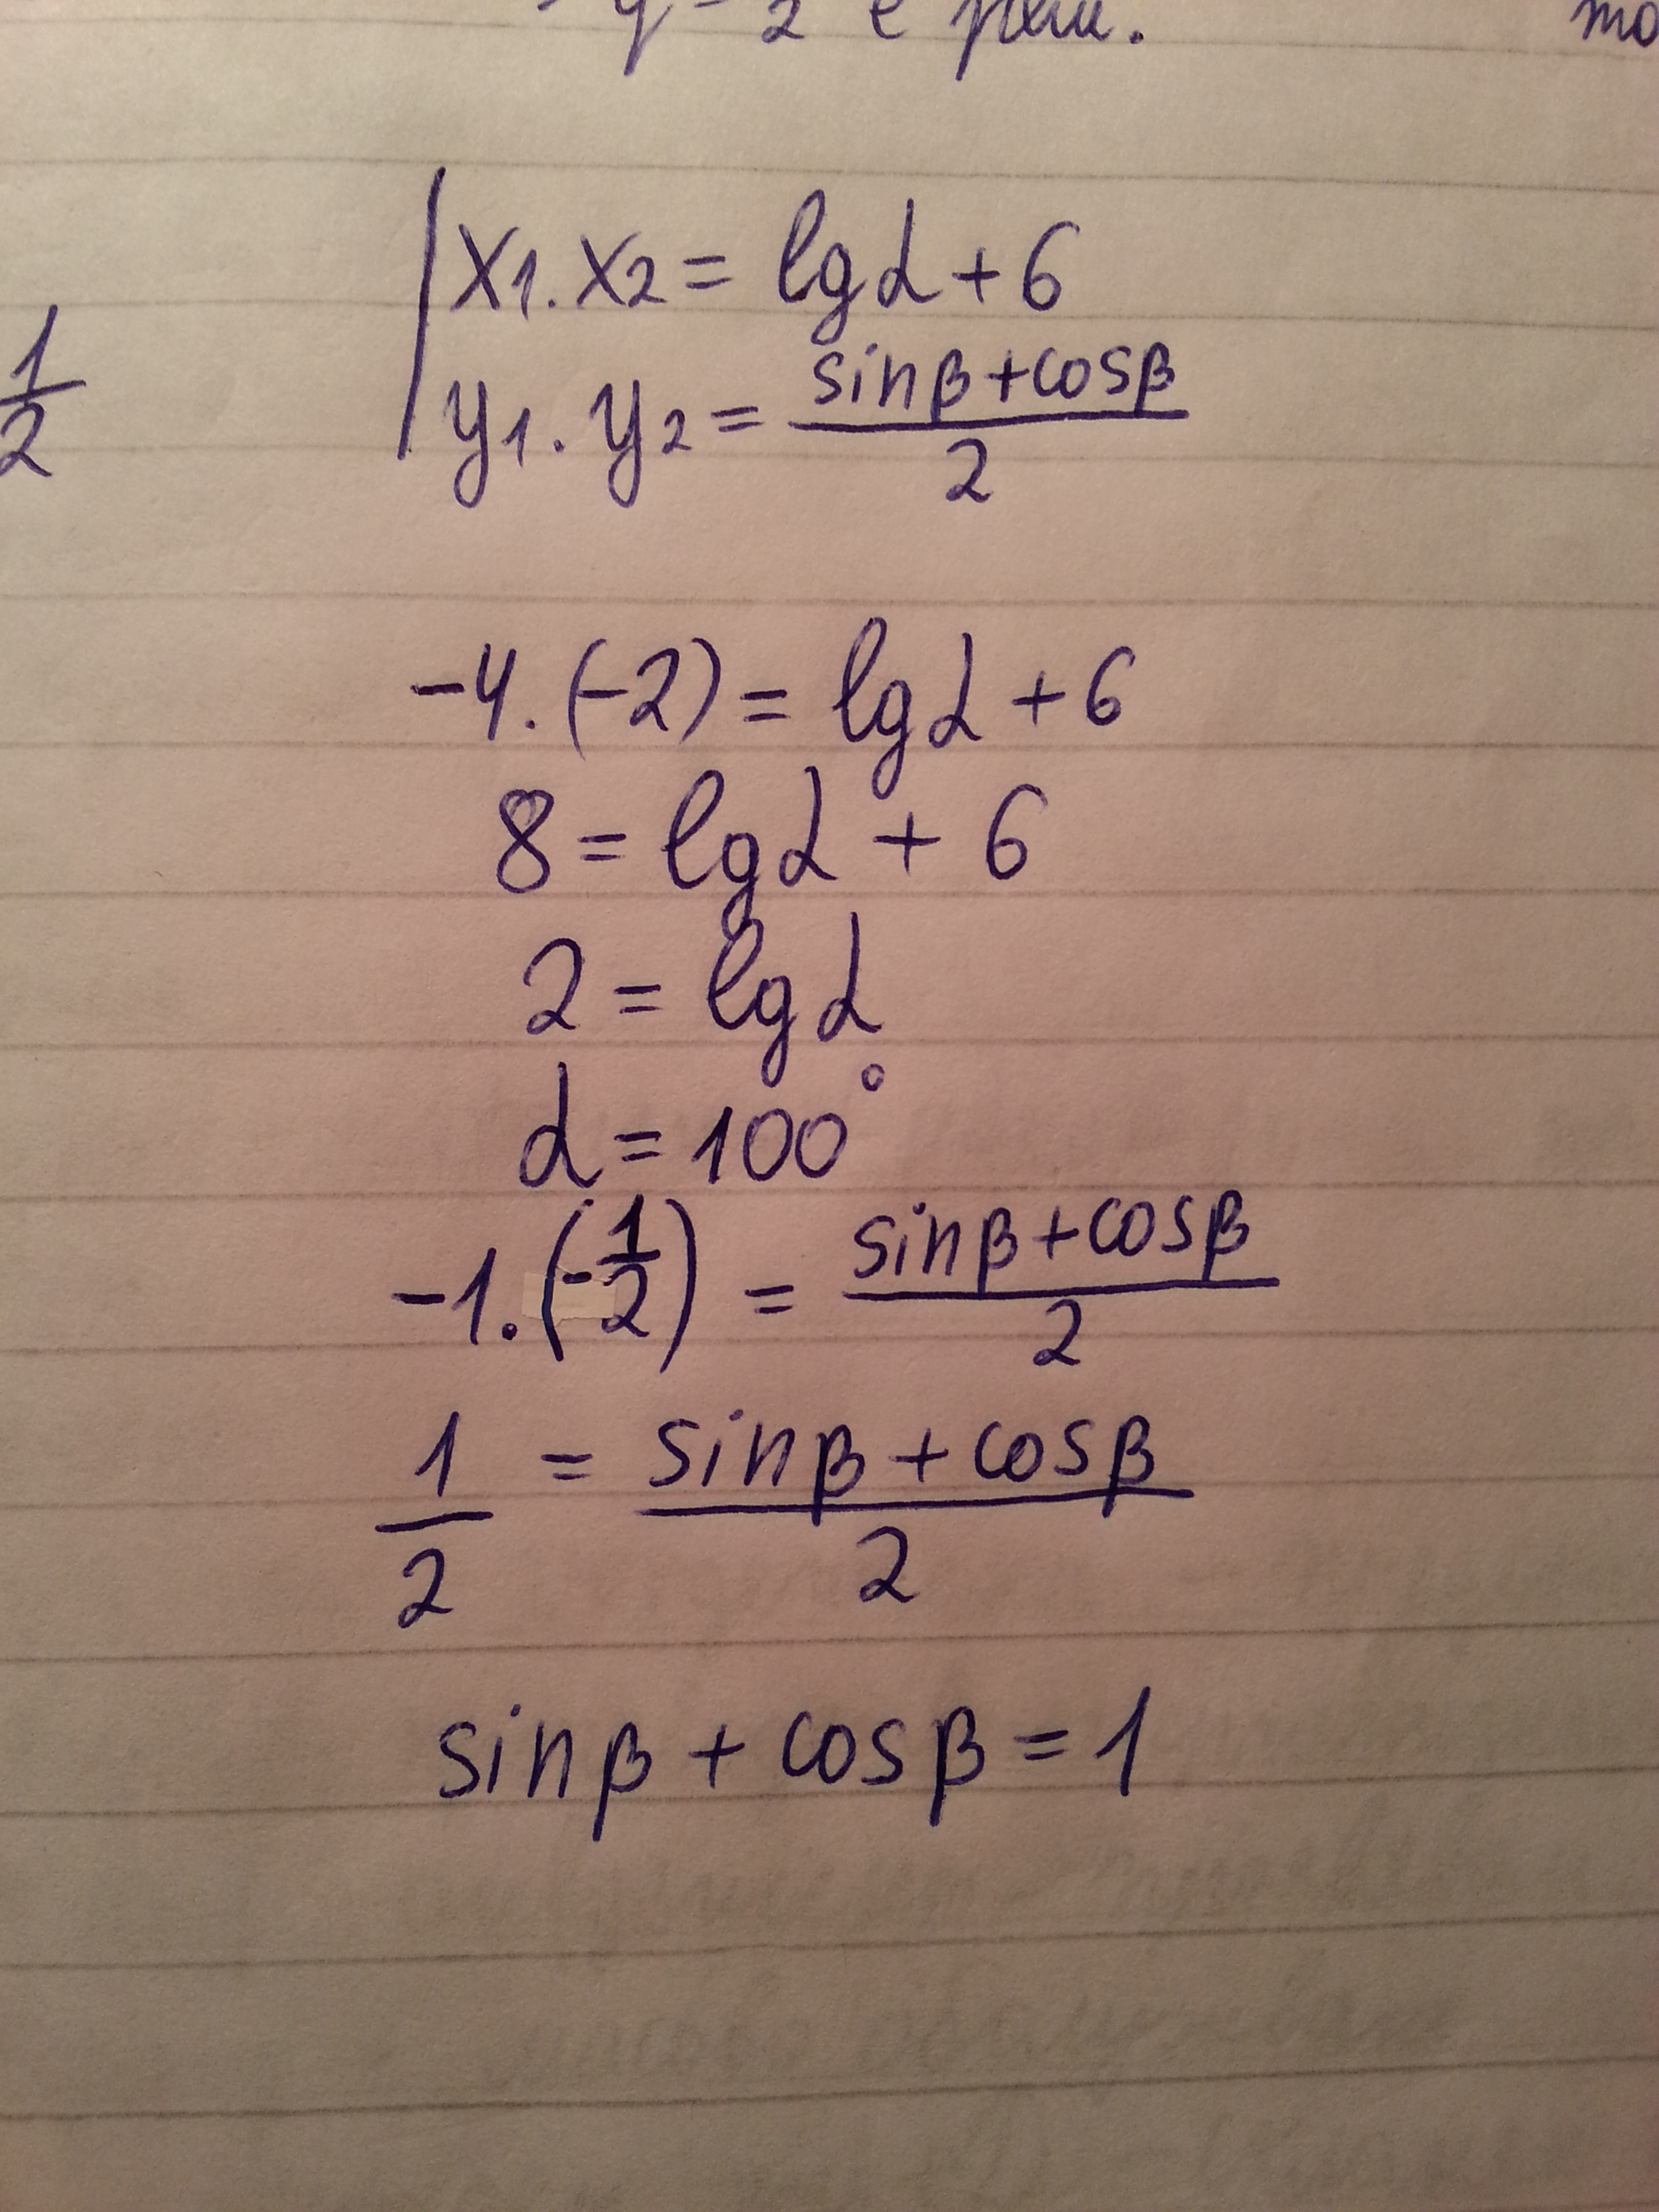 y = 2 е реш.
1/2
x1 . x2 = lg α + 6
y1 . y2 = (sin β + cos β)/2
-4 . (-2) = lg α + 6
8 = lg α + 6
2 = lg α
α = 100°
-1 . (-1/2) = (sin β + cos β)/2
1/2 = (sin β + cos β)/2
sin β + cos β = 1